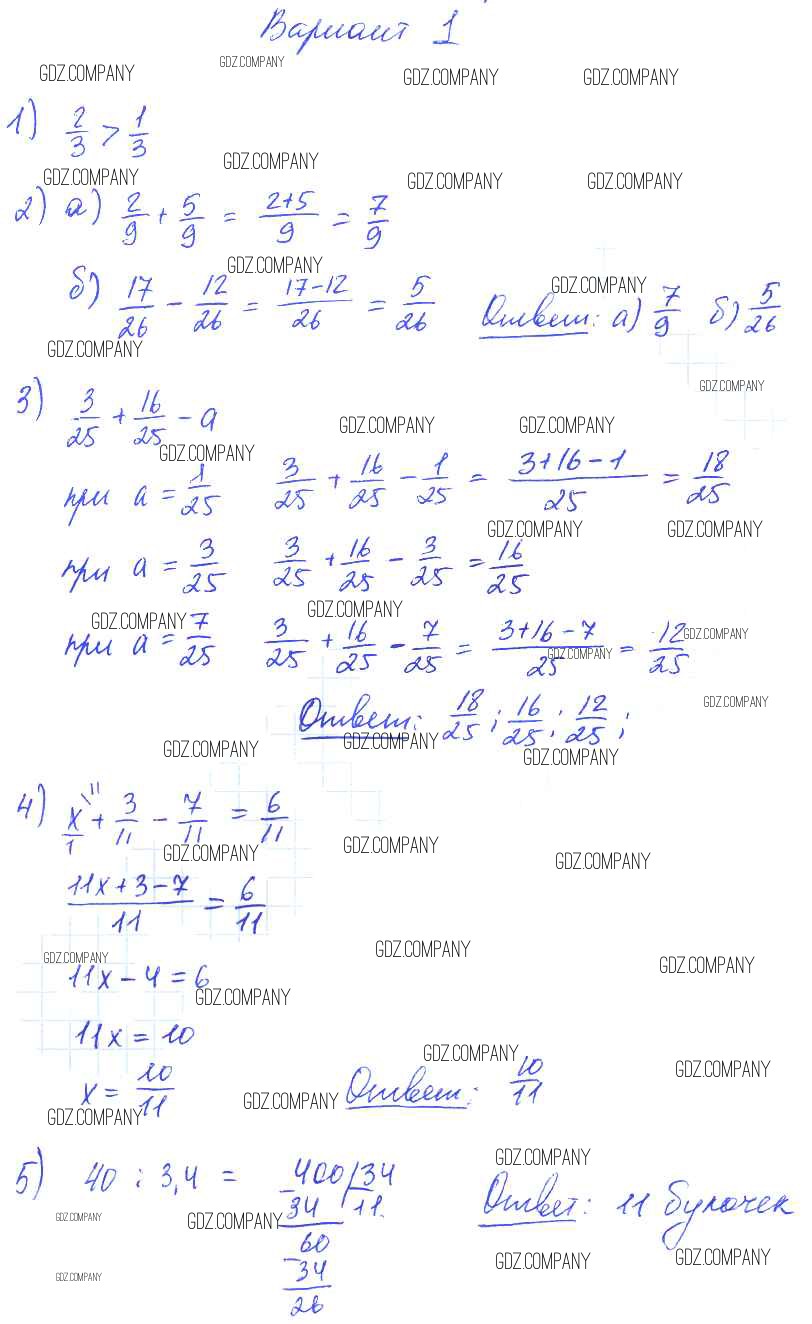 Вариант 1
GDZ.COMPANY GDZ.COMPANY GDZ.COMPANY GDZ.COMPANY
1) 2/3 > 1/3
GDZ.COMPANY GDZ.COMPANY GDZ.COMPANY GDZ.COMPANY
2) а) 2/9 + 5/9 = (2+5)/9 = 7/9
GDZ.COMPANY GDZ.COMPANY
б) 17/26 - 12/26 = (17-12)/26 = 5/26 Ответ: а) 7/9 б) 5/26
GDZ.COMPANY GDZ.COMPANY
3) 3/25 + 16/25 - a
GDZ.COMPANY GDZ.COMPANY GDZ.COMPANY
при a = 1/25 3/25 + 16/25 - 1/25 = (3+16-1)/25 = 18/25
GDZ.COMPANY GDZ.COMPANY
при a = 3/25 3/25 + 16/25 - 3/25 = 16/25
GDZ.COMPANY GDZ.COMPANY GDZ.COMPANY
при a = 7/25 3/25 + 16/25 - 7/25 = (3+16-7)/25 = 12/25
GDZ.COMPANY GDZ.COMPANY
Ответ: 18/25; 16/25; 12/25;
GDZ.COMPANY GDZ.COMPANY GDZ.COMPANY
4) x/1 \11 + 3/11 - 7/11 = 6/11
GDZ.COMPANY GDZ.COMPANY GDZ.COMPANY
(11x+3-7)/11 = 6/11
GDZ.COMPANY GDZ.COMPANY GDZ.COMPANY
11x - 4 = 6
GDZ.COMPANY
11x = 10
GDZ.COMPANY GDZ.COMPANY
x = 10/11 Ответ: 10/11
GDZ.COMPANY GDZ.COMPANY
GDZ.COMPANY
5) 40 : 3,4 = 400 | 34
- 34 11. Ответ: 11 булочек
GDZ.COMPANY GDZ.COMPANY
60
GDZ.COMPANY GDZ.COMPANY
- 34
GDZ.COMPANY
26